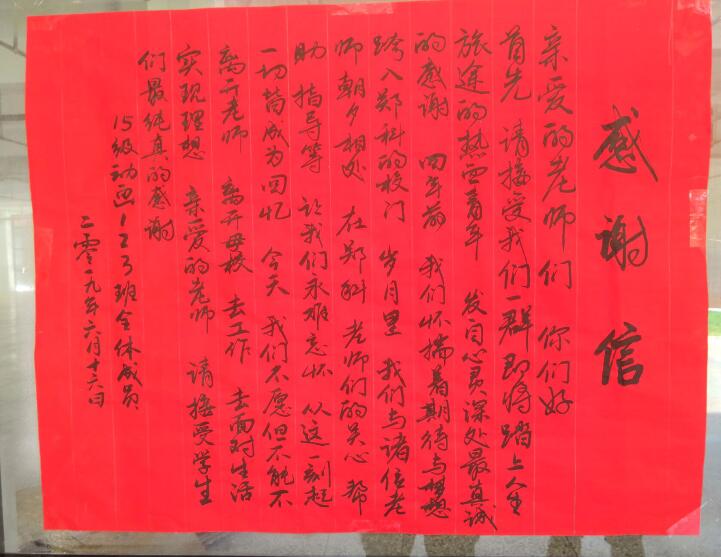 感谢信
亲爱的老师们 你们好
首先 请接受我们一群即将踏上人生
旅途的热血青年 发自心灵深处最真诚
的感谢 四年前 我们怀揣着期待与梦想
跨入郑科的校门 岁月里 我们与诸位老
师朝夕相处 在郑科 老师们的关心 帮
助 指导等 让我们永难忘怀 从这一刻起
一切皆成为回忆 今天 我们不愿但不能不
离开老师 离开母校 去工作 去面对生活
实现理想 亲爱的老师 请接受学生
们最纯真的感谢
15级动画123班全体成员
二零一九年六月十六日